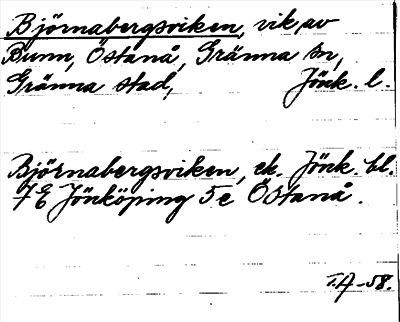 Björnabergsviken, vik av
Bunn, Östanå, Gränna sn,
Gränna stad, Jönk. l.
Björnabergsviken, ek. Jönk. bl.
7E Jönköping 5e Östanå.
T.A-58.